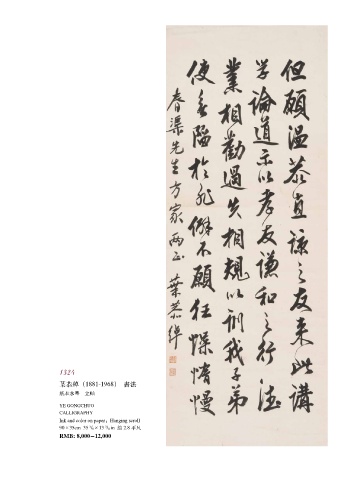 但願温恭直諒之友來此講
学論道示以孝友謙和之行德
業相勸過失相規以訓我子弟
使無陷於非僻不願狂懆惰慢
春渠先生方家兩正 葉恭綽
1325
葉恭綽 (1881-1968) 書法
紙本水墨 立軸
YE GONGCHUO
CALLIGRAPHY
Ink and color on paper; Hanging scroll
RMB: 8,000—12,000